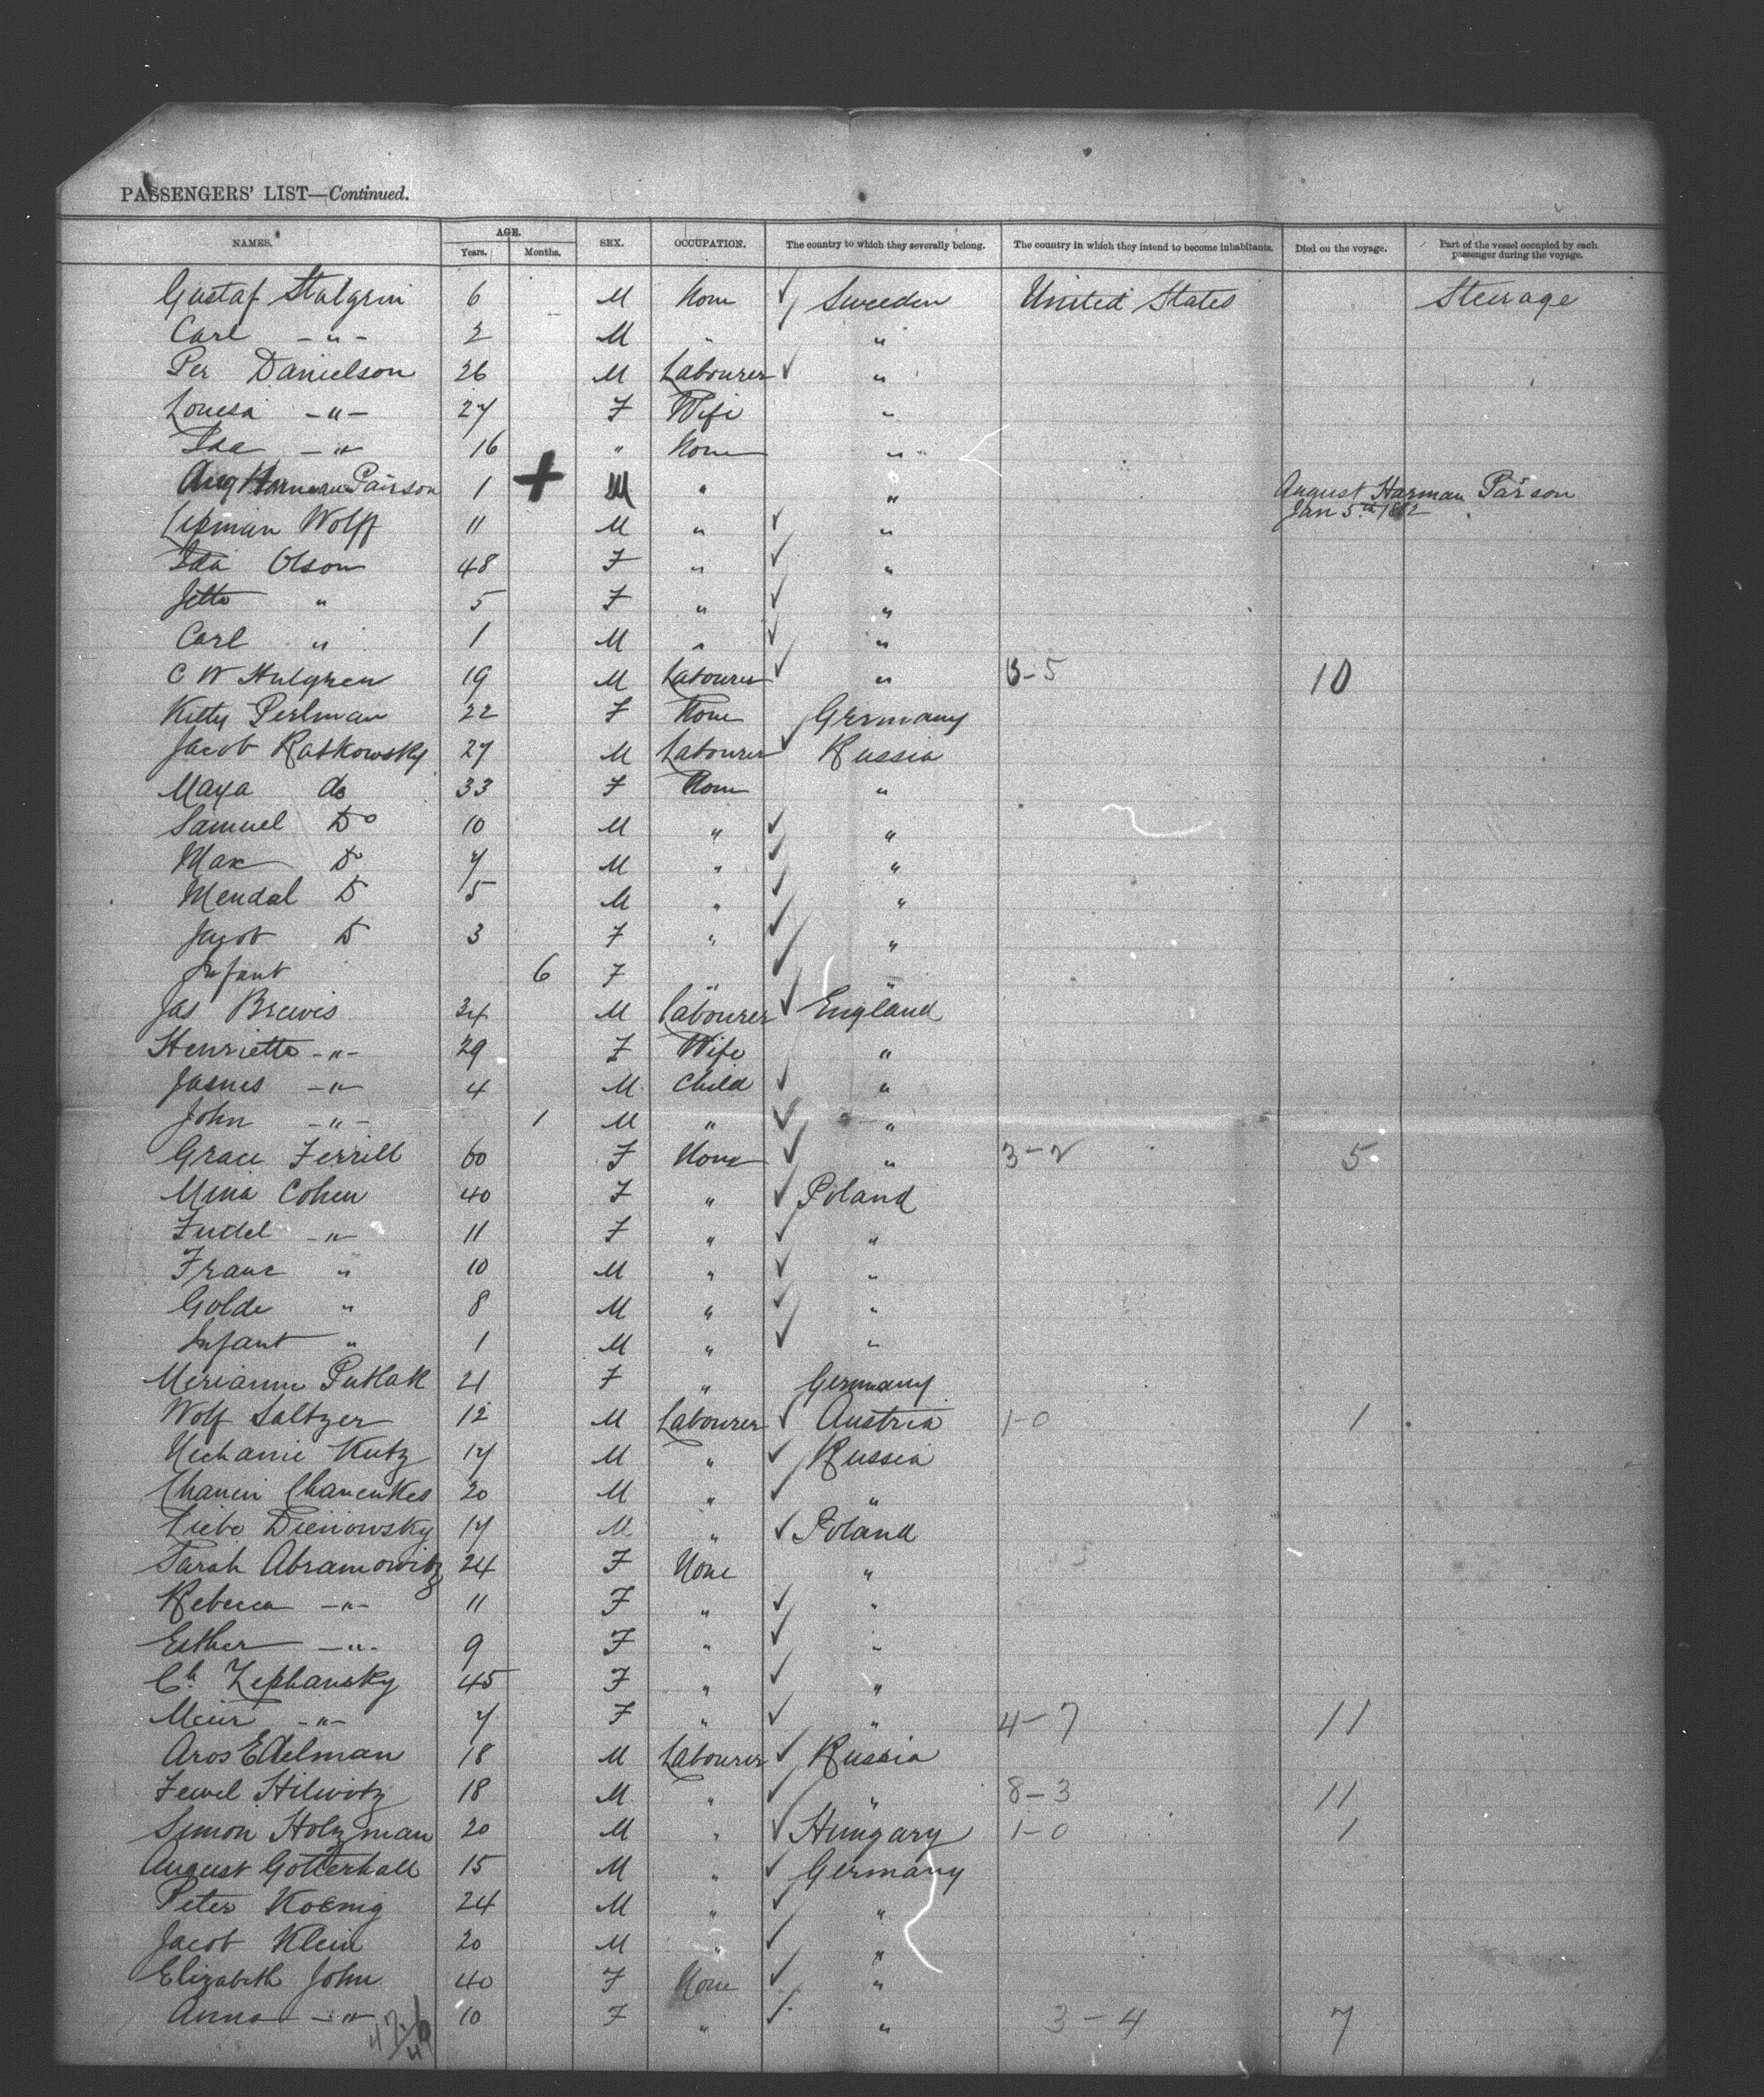 PASSENGERS' LIST—Continued.
NAMES. AGE. Years. Months. SEX. OCCUPATION. The country to which they severally belong. The country in which they intend to become inhabitants. Died on the voyage. Part of the vessel occupied by each passenger during the voyage.
Gustaf 6 M None Sweeden United States Steerage
Carl -"- 2 M " "
Per Danielson 26 M Labourer "
Louesa -"- 27 F Wife "
Ida -"- 16 " None "
Aug Herman Pairson 1 + M " " August Harman Parson
Jan 5th 1882
Lipman Wolff 11 M " "
Ida Olson 48 F " "
Jette " 5 F " "
Carl " 1 M " "
C W Hulgren 19 M Labourer " 5 10
Kitty Perlman 22 F None Germany
Jacob Ratkowsky 27 M Labourer Russia
Maya do 33 F None "
Samuel Do 10 M " "
Max Do 7 M " "
Mendal Do 5 M " "
Jacob Do 3 F " "
Infant 6 F " "
Jas Brewis 34 M Labourer England
Henriette -"- 29 F Wife "
James -"- 4 M Child "
John -"- 1 M " "
Grace Ferrill 60 F None " 3-2 5
Mina Cohen 40 F " Poland
Judel -"- 11 F " "
Franc " 10 M " "
Golde " 8 M " "
Infant " 1 M " "
Merianne Putlak 21 F " Germany
Wolf Saltzer 12 M Labourer Austria 1-0 1
Nechame Kutz 17 M " Russia
Chanen Chanenkes 20 M " "
Liebe Dienowsky 17 M " Poland
Sarah Abramowitz 24 F None "
Rebecca -"- 11 F " "
Esther -"- 9 F " "
Ch. Zephansky 45 F " "
Meir -"- 7 F " " 4-7 11
Aros Edelman 18 M Labourer Russia
Jewel Hilwitz 18 M " " 8-3 11
Simon Holzman 20 M " Hungary 1-0 1
August Gotterhall 15 M " Germany
Peter Koenig 24 M " "
Jacob Klein 20 M " "
Elizabeth John 40 F None "
Anna -"- 10 F " " 3-4 7